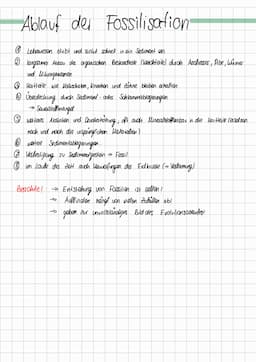 Ablauf der Fossilisation
① Lebewesen stirbt und sinkt schnell in ein Sediment ein
② langsamer Abbau der organischen Bestandteile (Weichteile) durch Aasfresser, Pilze, Würmer
und
③ Hartteile wie Kalkschalen, Knochen und Zähne bleiben erhalten
④ Überdeckung durch Sediment- oder Schlammablagerungen
→ Sauerstoffmangel
⑤ weiteres Auflösen und
nach und nach die ursprünglichen
⑥ weitere Sedimentablagerungen
⑦ Verfestigung zu Sedimentgestein → Fossil
⑧ im Laufe der Zeit auch Verwerfungen der Erdkruste (→ Verformung)
Beachte! → Entstehung von Fossilien ist selten!
→ Auffinden hängt von vielen Zufällen ab!
→ geben nur unvollständiges Bild des Evolutionsverlaufes!